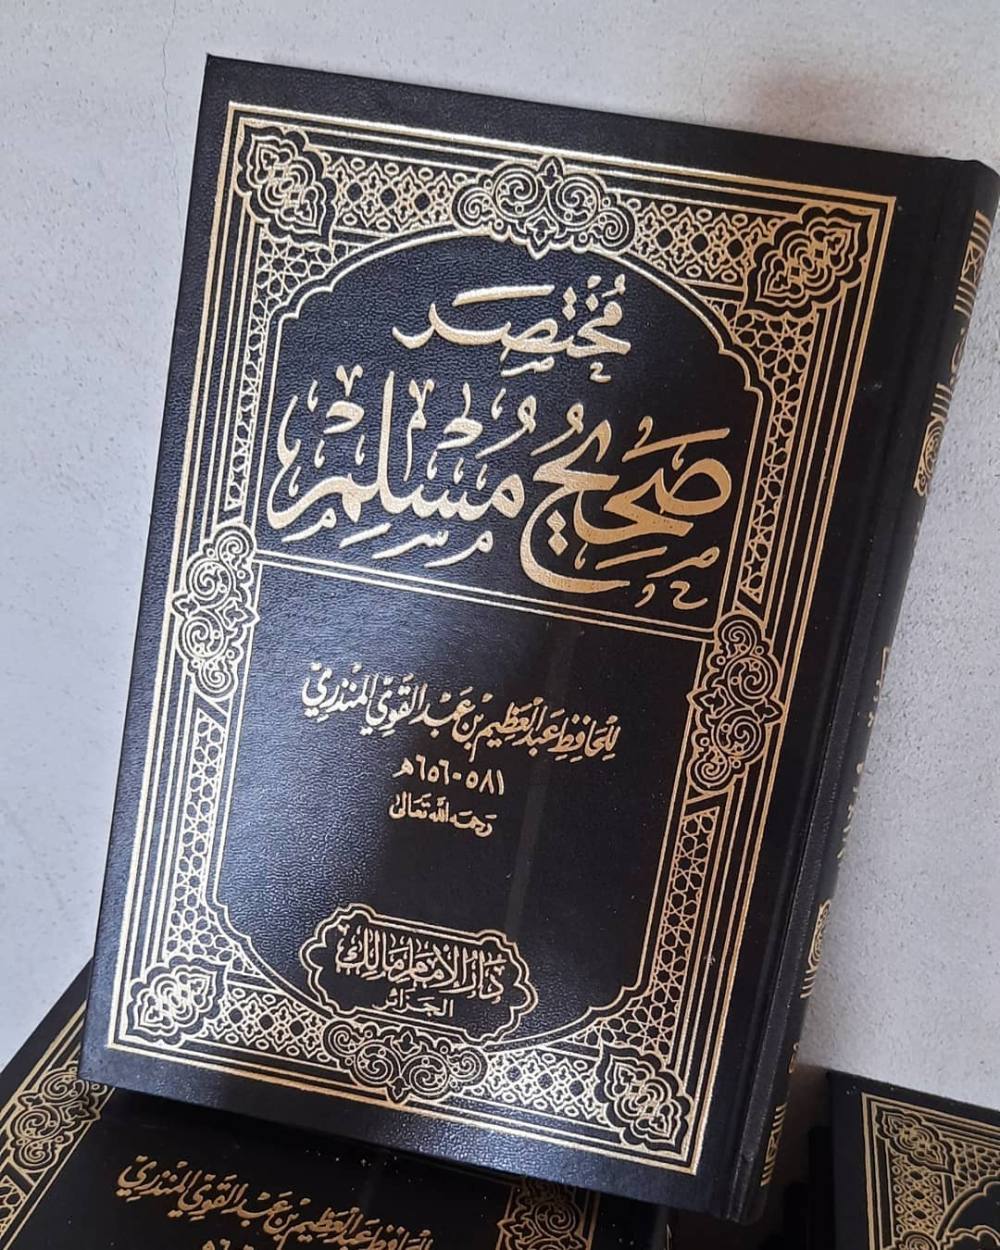 مُخْتَصَر
صَحِيحُ مُسْلِمْ
لِلْحَافِظِ عَبْدِ الْعَظِيمِ بْنِ عَبْدِ الْقَوِيِّ الْمُنْذِرِيّ
٥٨١-٦٥٦هـ
رَحِمَهُ اللَّه تَعَالَى
دَارُ الإِمَامِ مَالِك
الجزائر
لِلْحَافِظِ عَبْدِ الْعَظِيمِ بْنِ عَبْدِ الْقَوِيِّ الْمُنْذِرِيّ